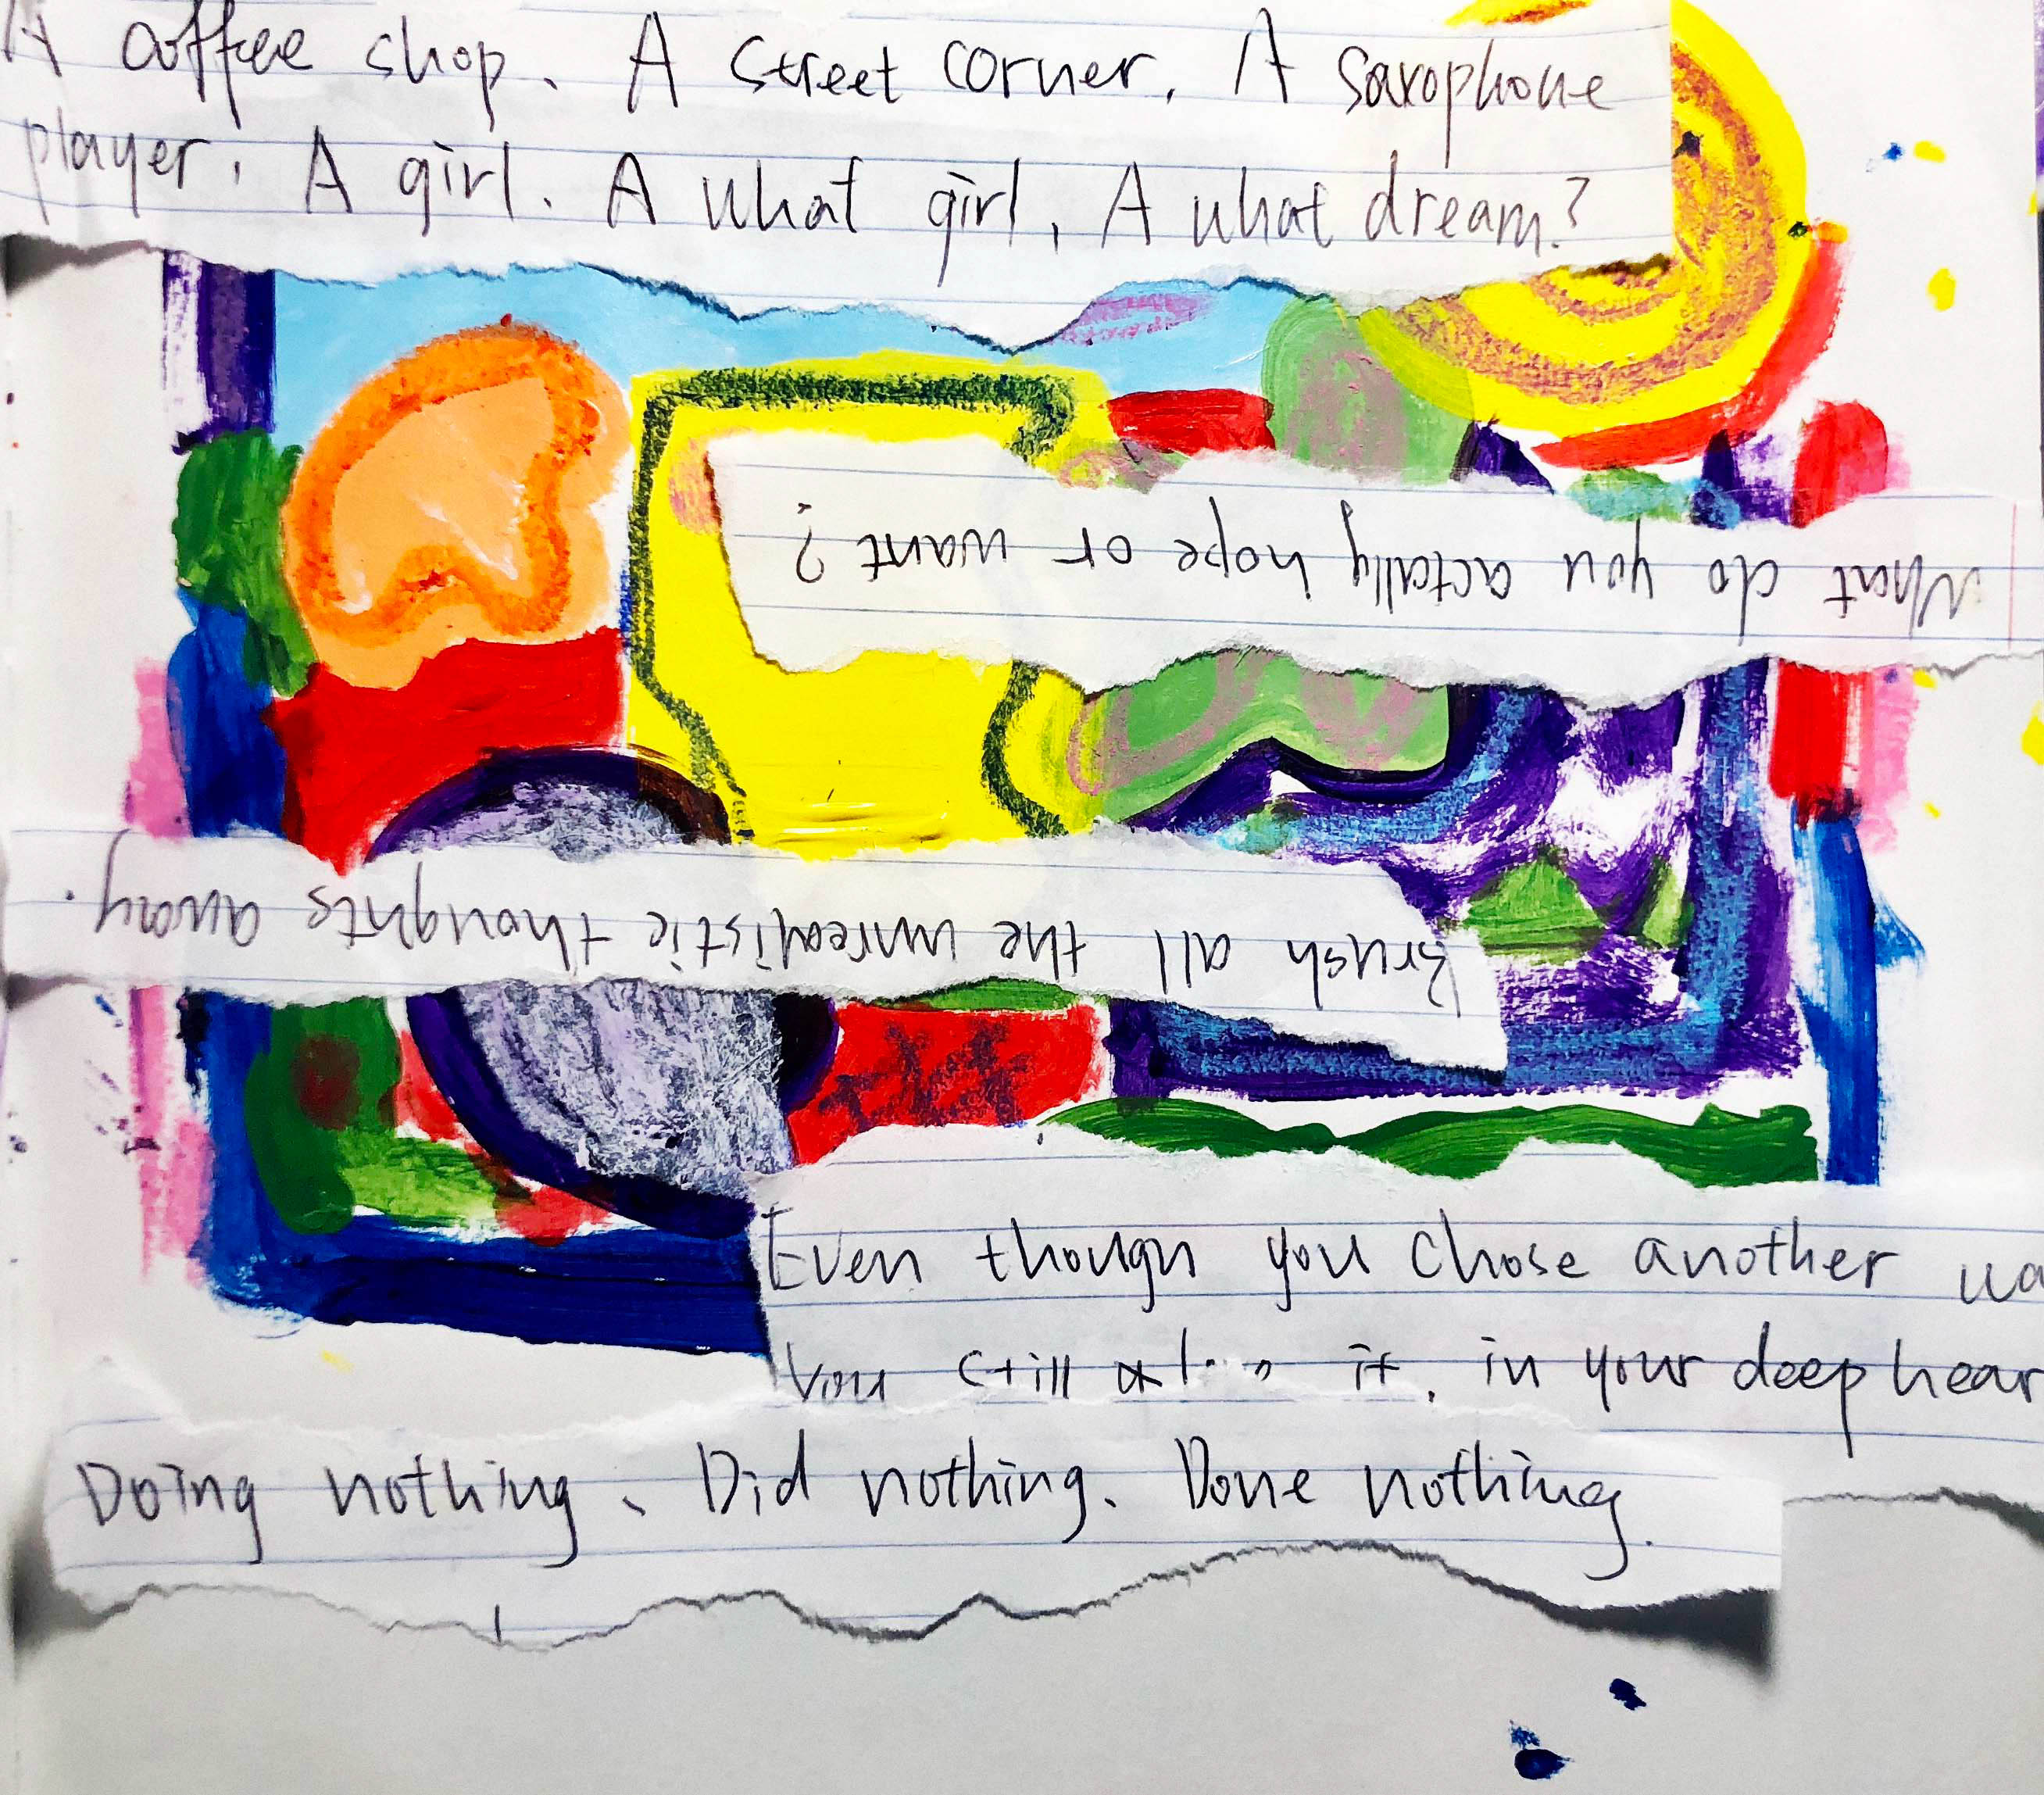 A coffee shop. A street corner. A saxophone
player. A girl. A what girl, A what dream?
What do you actally hope or want?
Brush all the unrealistic thoughts away.
Even though you chose another
You still it. in your deep
Doing nothing. Did nothing. Done nothing.